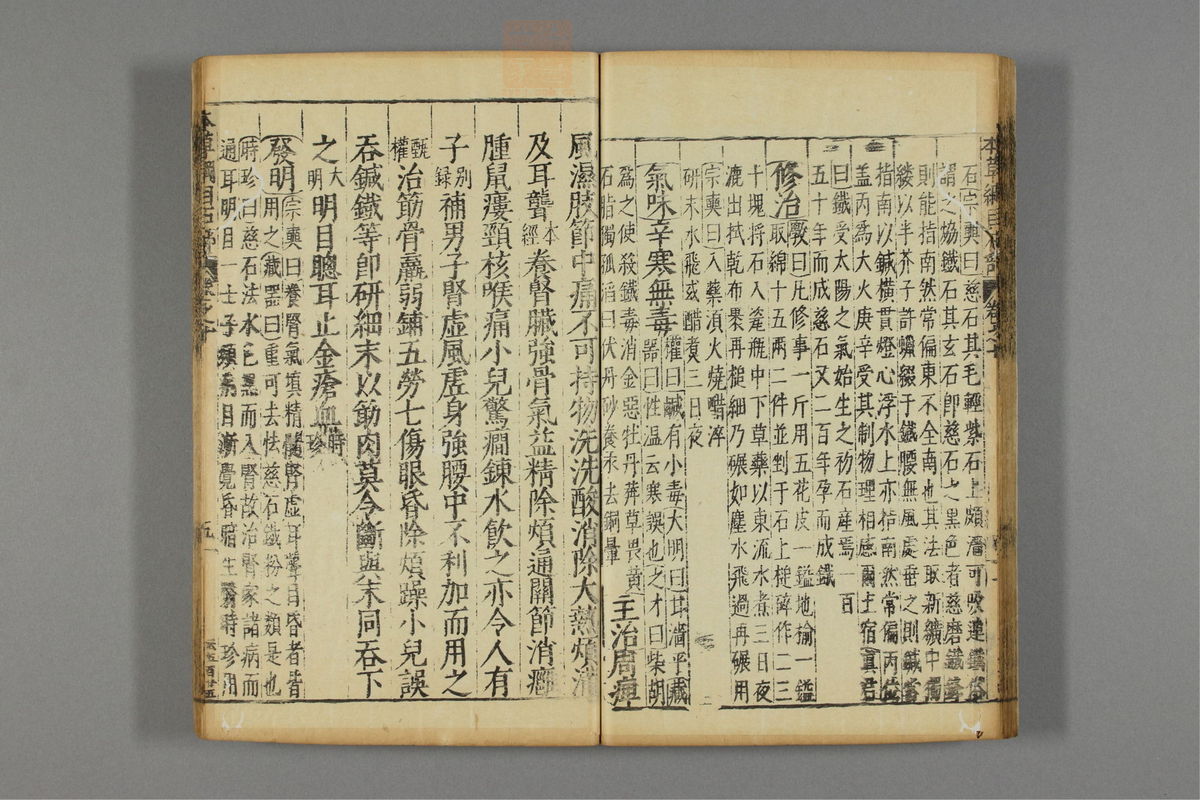 本草綱目石部 卷之十
石宗奭曰慈石其毛輕紫石上頗濇可吸連鐵
謂之協鐵石其玄石卽慈石之黑色者慈磨鐵
則能指南然常偏東不全南也其法取新纊中獨
縷以半芥子許蠟綴于鐵腰無風處垂之則鍼常
指南以鍼橫貫燈心浮水上亦指南然常偏丙位
蓋丙爲大火庚辛受其制物理相感爾土宿眞君
曰鐵受太陽之氣始生之初石産焉一百
五十年而成慈石又二百年孕而成鐵
修治斆曰凡修事一斤用五花皮一鎰地榆一鎰
取綿十五兩二件並剉于石上槌碎作二三
十塊將石入瓷瓶中下草藥以東流水煮三日夜
漉出拭乾布裹再槌細乃碾如塵水飛過再碾用
宗奭曰入藥須火燒醋淬
硏末水飛或醋煮三日夜
氣味辛寒無毒權曰鹹有小毒大明曰甘濇平藏
器曰性温云寒誤也之才曰柴胡
爲之使殺鐵毒消金惡牡丹莽草畏黄
石脂獨孤滔曰伏丹砂養汞去銅暈
主治周痺
風濕肢節中痛不可持物洗洗酸消除大熱煩滿
及耳聾本經養腎臟強骨氣益精除煩通關節消癰
腫鼠瘻頸核喉痛小兒驚癎鍊水飲之亦令人有
子别録補男子腎虛風虛身強腰中不利加而用之
甄權治筋骨羸弱補五勞七傷眼昏除煩躁小兒誤
吞鍼鐵等卽研細末以筋肉莫令斷與末同吞下
之大明明目聰耳止金瘡血時珍
發明宗奭曰養腎氣填精髓腎虛耳聾目昏者皆
用之藏器曰重可去怯慈石鐵粉之類是也
時珍曰慈石法水色黑而入腎故治腎家諸病而
通耳明目一士子頻病目漸覺昏暗生翳時珍用
本草綱目石部 卷之十
五